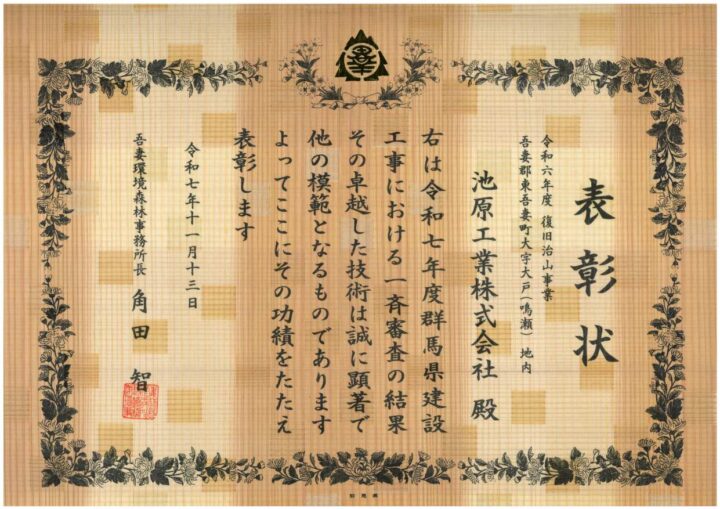 表彰状
令和六年度 復旧治山事業
吾妻郡東吾妻町大字大戸(鳴瀬)地内
池原工業株式会社 殿
右は令和七年度群馬県建設
工事における一斉審査の結果
その卓越した技術は誠に顕著で
他の模範となるものであります
よってここにその功績をたたえ
表彰します
令和七年十一月十三日
吾妻環境森林事務所長 角田 智